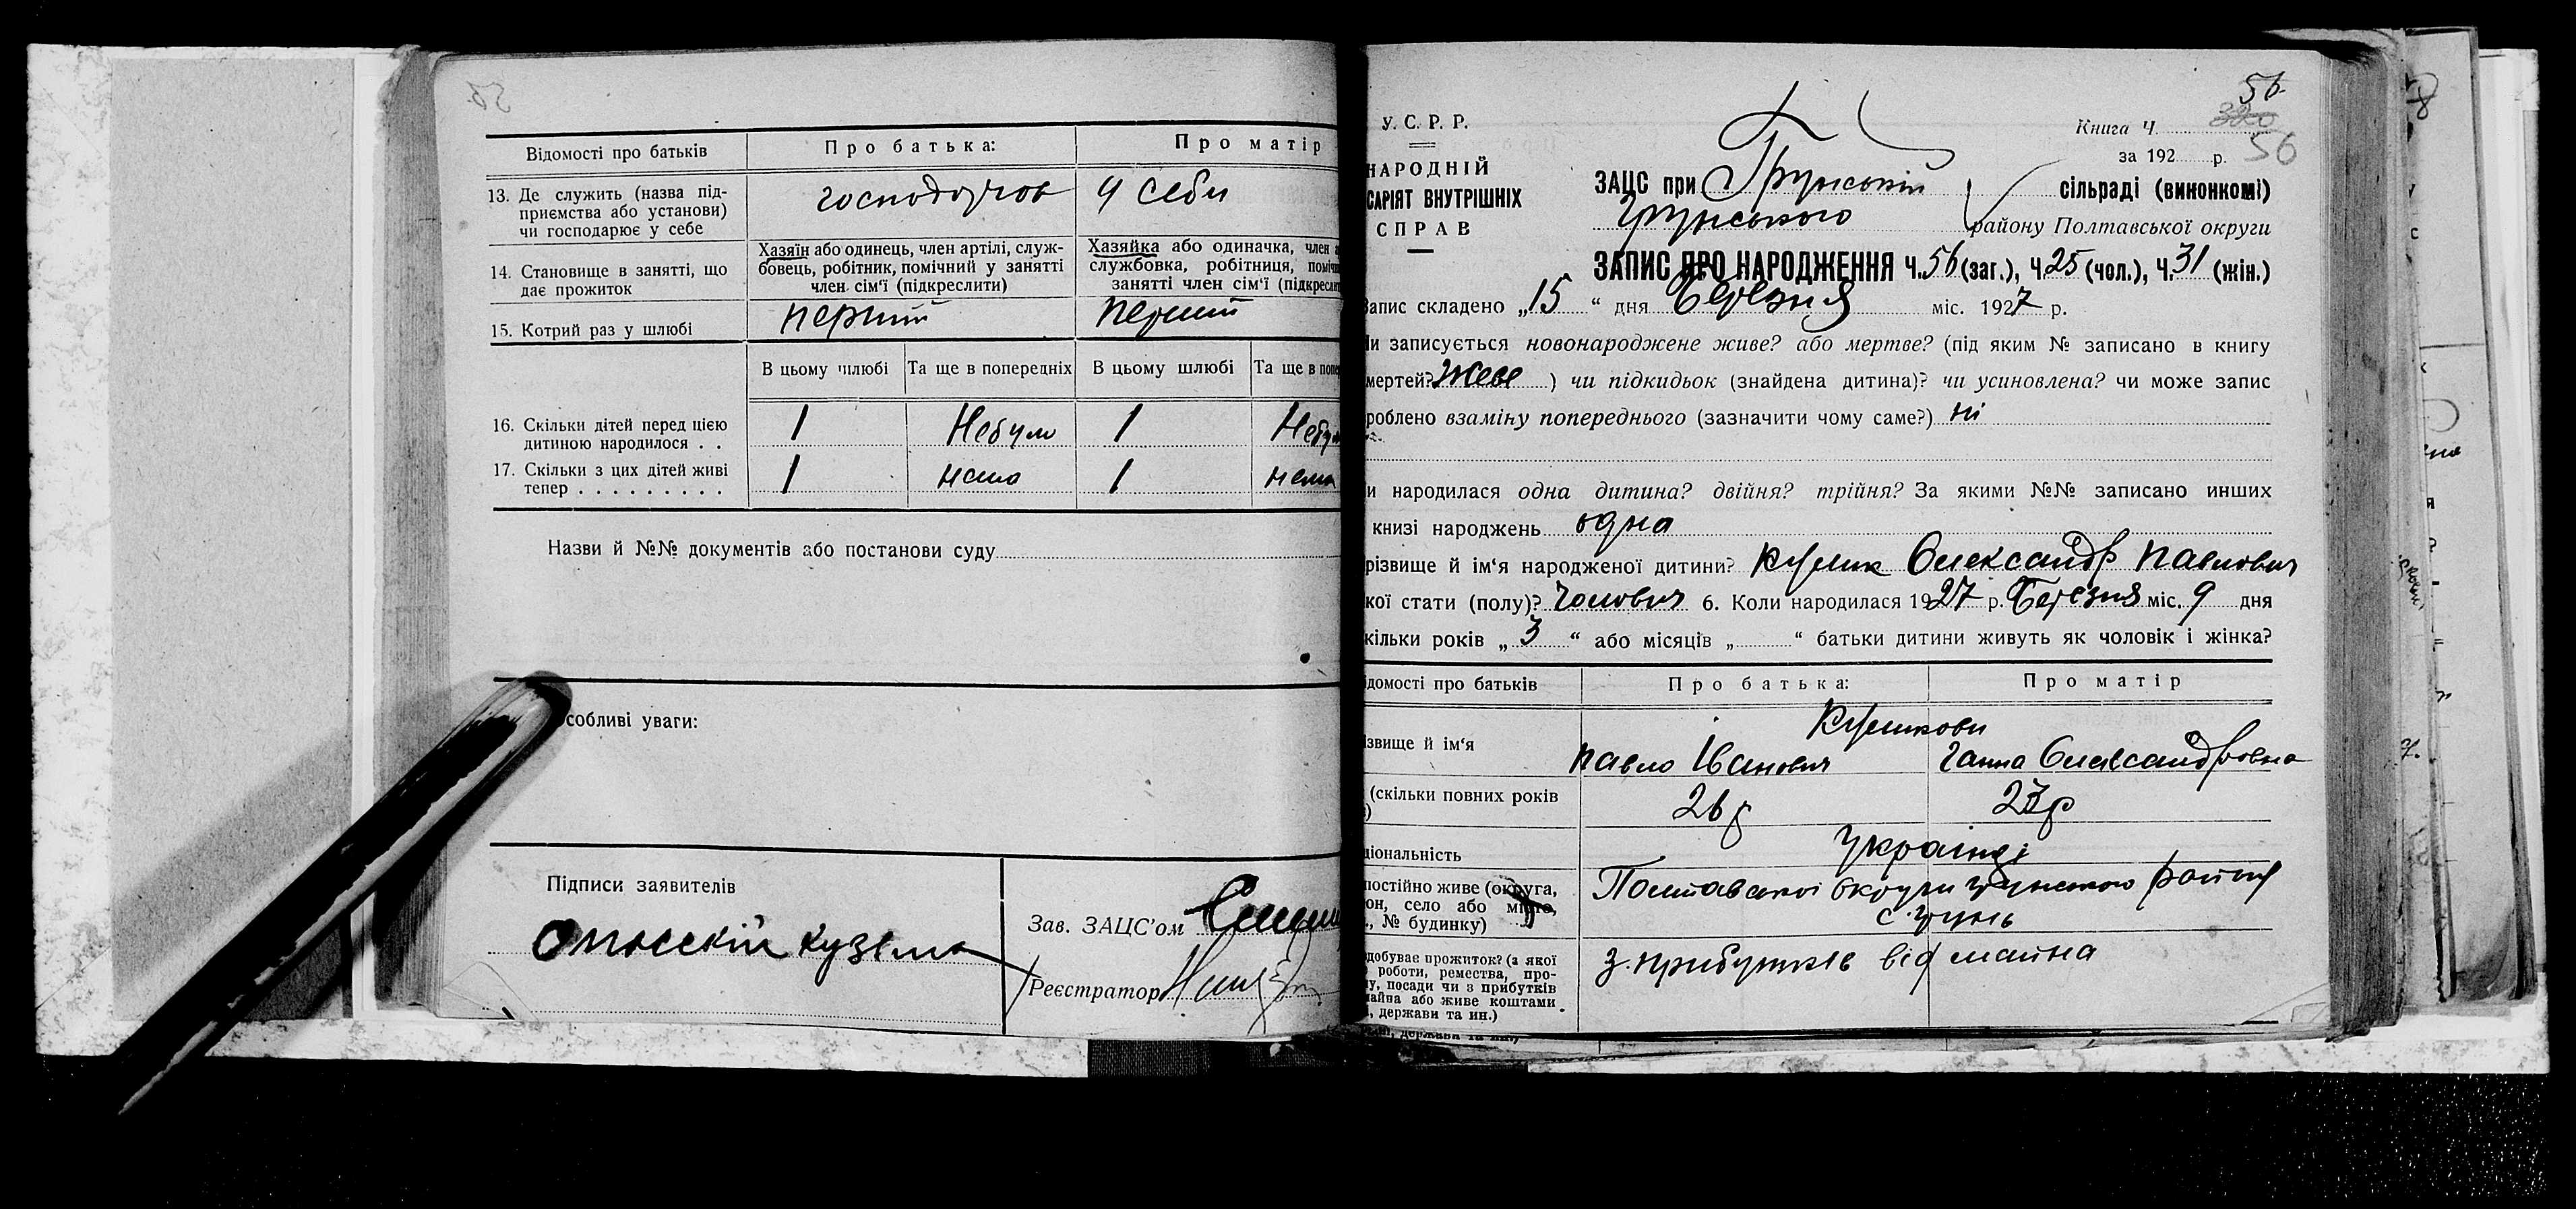 Відомості про батьків
Про батька:
Про матір
13. Де служить (назва під-
приємства або установи)
чи господарює у себе
у себи
14. Становище в занятті, що
дає прожиток
Хазяїн або одинець, член артілі, служ-
бовець, робітник, помічний у занятті
член сім'ї (підкреслити)
Хазяйка або одиначка, член
службовка, робітниця,
занятті член сім'ї
15. Котрий раз у шлюбі
перший
перший
В цьому шлюбі
Та ще в попередніх
В цьому шлюбі
Та ще в
16. Скільки дітей перед цією
дитиною народилося . .
1
Небуло
1
17. Скільки з цих дітей живі
тепер . . . . . . . . .
1
нема
1
нема
Назви й №№ документів або постанови суду
собливі уваги:
Підписи заявителів
Кузьма
Зав. ЗАЦС'ом
Реєстратор
56
Книга Ч.
56
за 192 р.
У. С. Р. Р.
НАРОДНІЙ
САРІЯТ ВНУТРІШНІХ
СПРАВ
ЗАЦС при Грунській сільраді (виконкомі)
Грунського району Полтавської округи
ЗАПИС ПРО НАРОДЖЕННЯ Ч. 56 (заг.), Ч. 25 (чол.), Ч. 31 (жін.)
Запис складено „15“ дня Березня міс. 1927 р.
и записується новонароджене живе? або мертве? (під яким № записано в книгу
мертей? Живе ) чи підкидьок (знайдена дитина)? чи усиновлена? чи може запис
роблено взаміну попереднього (зазначити чому саме?) ні
и народилася одна дитина? двійня? трійня? За якими №№ записано инших
книзі народжень одна
різвище й ім'я народженої дитини? Олександр Павлович
кої стати (полу)? Чоловіч 6. Коли народилася 1927 р. Березня міс. 9 дня
кільки років „3“ або місяців „ “ батьки дитини живуть як чоловік і жінка?
ідомості про батьків
Про батька:
Про матір
ізвище й ім'я
Павло Іванович
Ганна Олександровна
(скільки повних років
26 р
23 р
ціональність
Українці
постійно живе (округа,
он, село або місто,
., № будинку)
Полтавської округи Грунського району
с. Грунь
добуває прожиток? (з якої
роботи, ремества, про-
у, посади чи з прибутків
майна або живе коштами
, держави та ин.)
з прибутків від майна